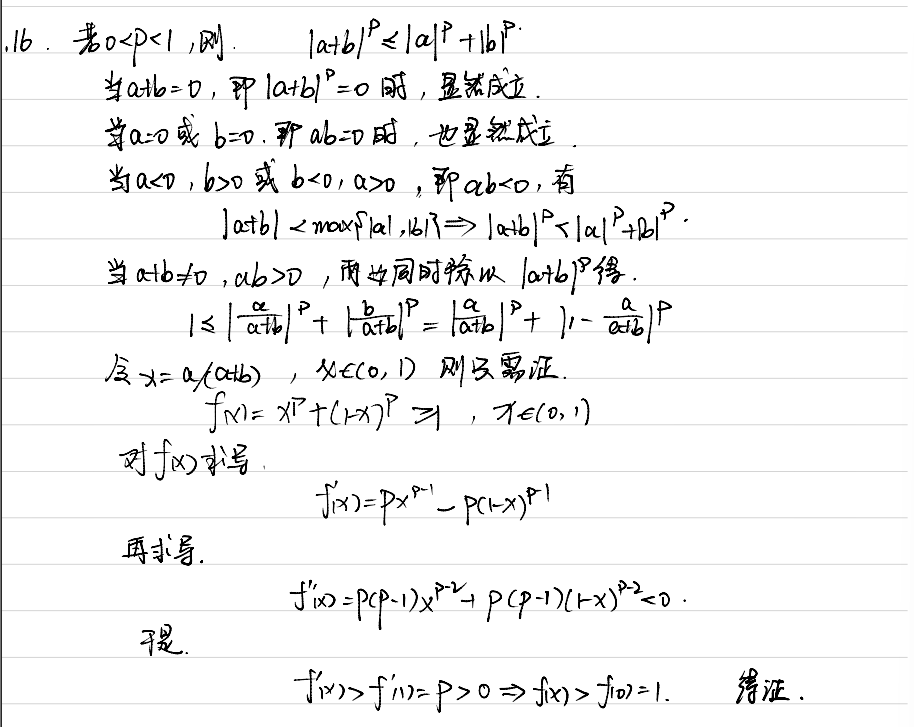 .16. 若0<p<1,则. |a+b|^p ≤ |a|^p + |b|^p.
当a+b=0,即|a+b|^p=0时,显然成立.
当a=0或b=0.即ab=0时,也显然成立.
当a<0,b>0或b<0,a>0,即ab<0,有
|a+b| < max{|a|,|b|} ⇒ |a+b|^p < |a|^p+|b|^p.
当a+b≠0,ab>0,两边同时除以|a+b|^p得.
1 ≤ |a/(a+b)|^p + |b/(a+b)|^p = |a/(a+b)|^p + |1 - a/(a+b)|^p
令x=a/(a+b),x∈(0,1)则只需证.
f(x)=x^p+(1-x)^p ≥1,x∈(0,1)
对f(x)求导.
f'(x)=px^{p-1} - p(1-x)^{p-1}
再求导.
f''(x)=p(p-1)x^{p-2}+p(p-1)(1-x)^{p-2}<0.
于是.
f'(x)>f'(1)=p>0 ⇒ f(x)>f(0)=1. 得证.